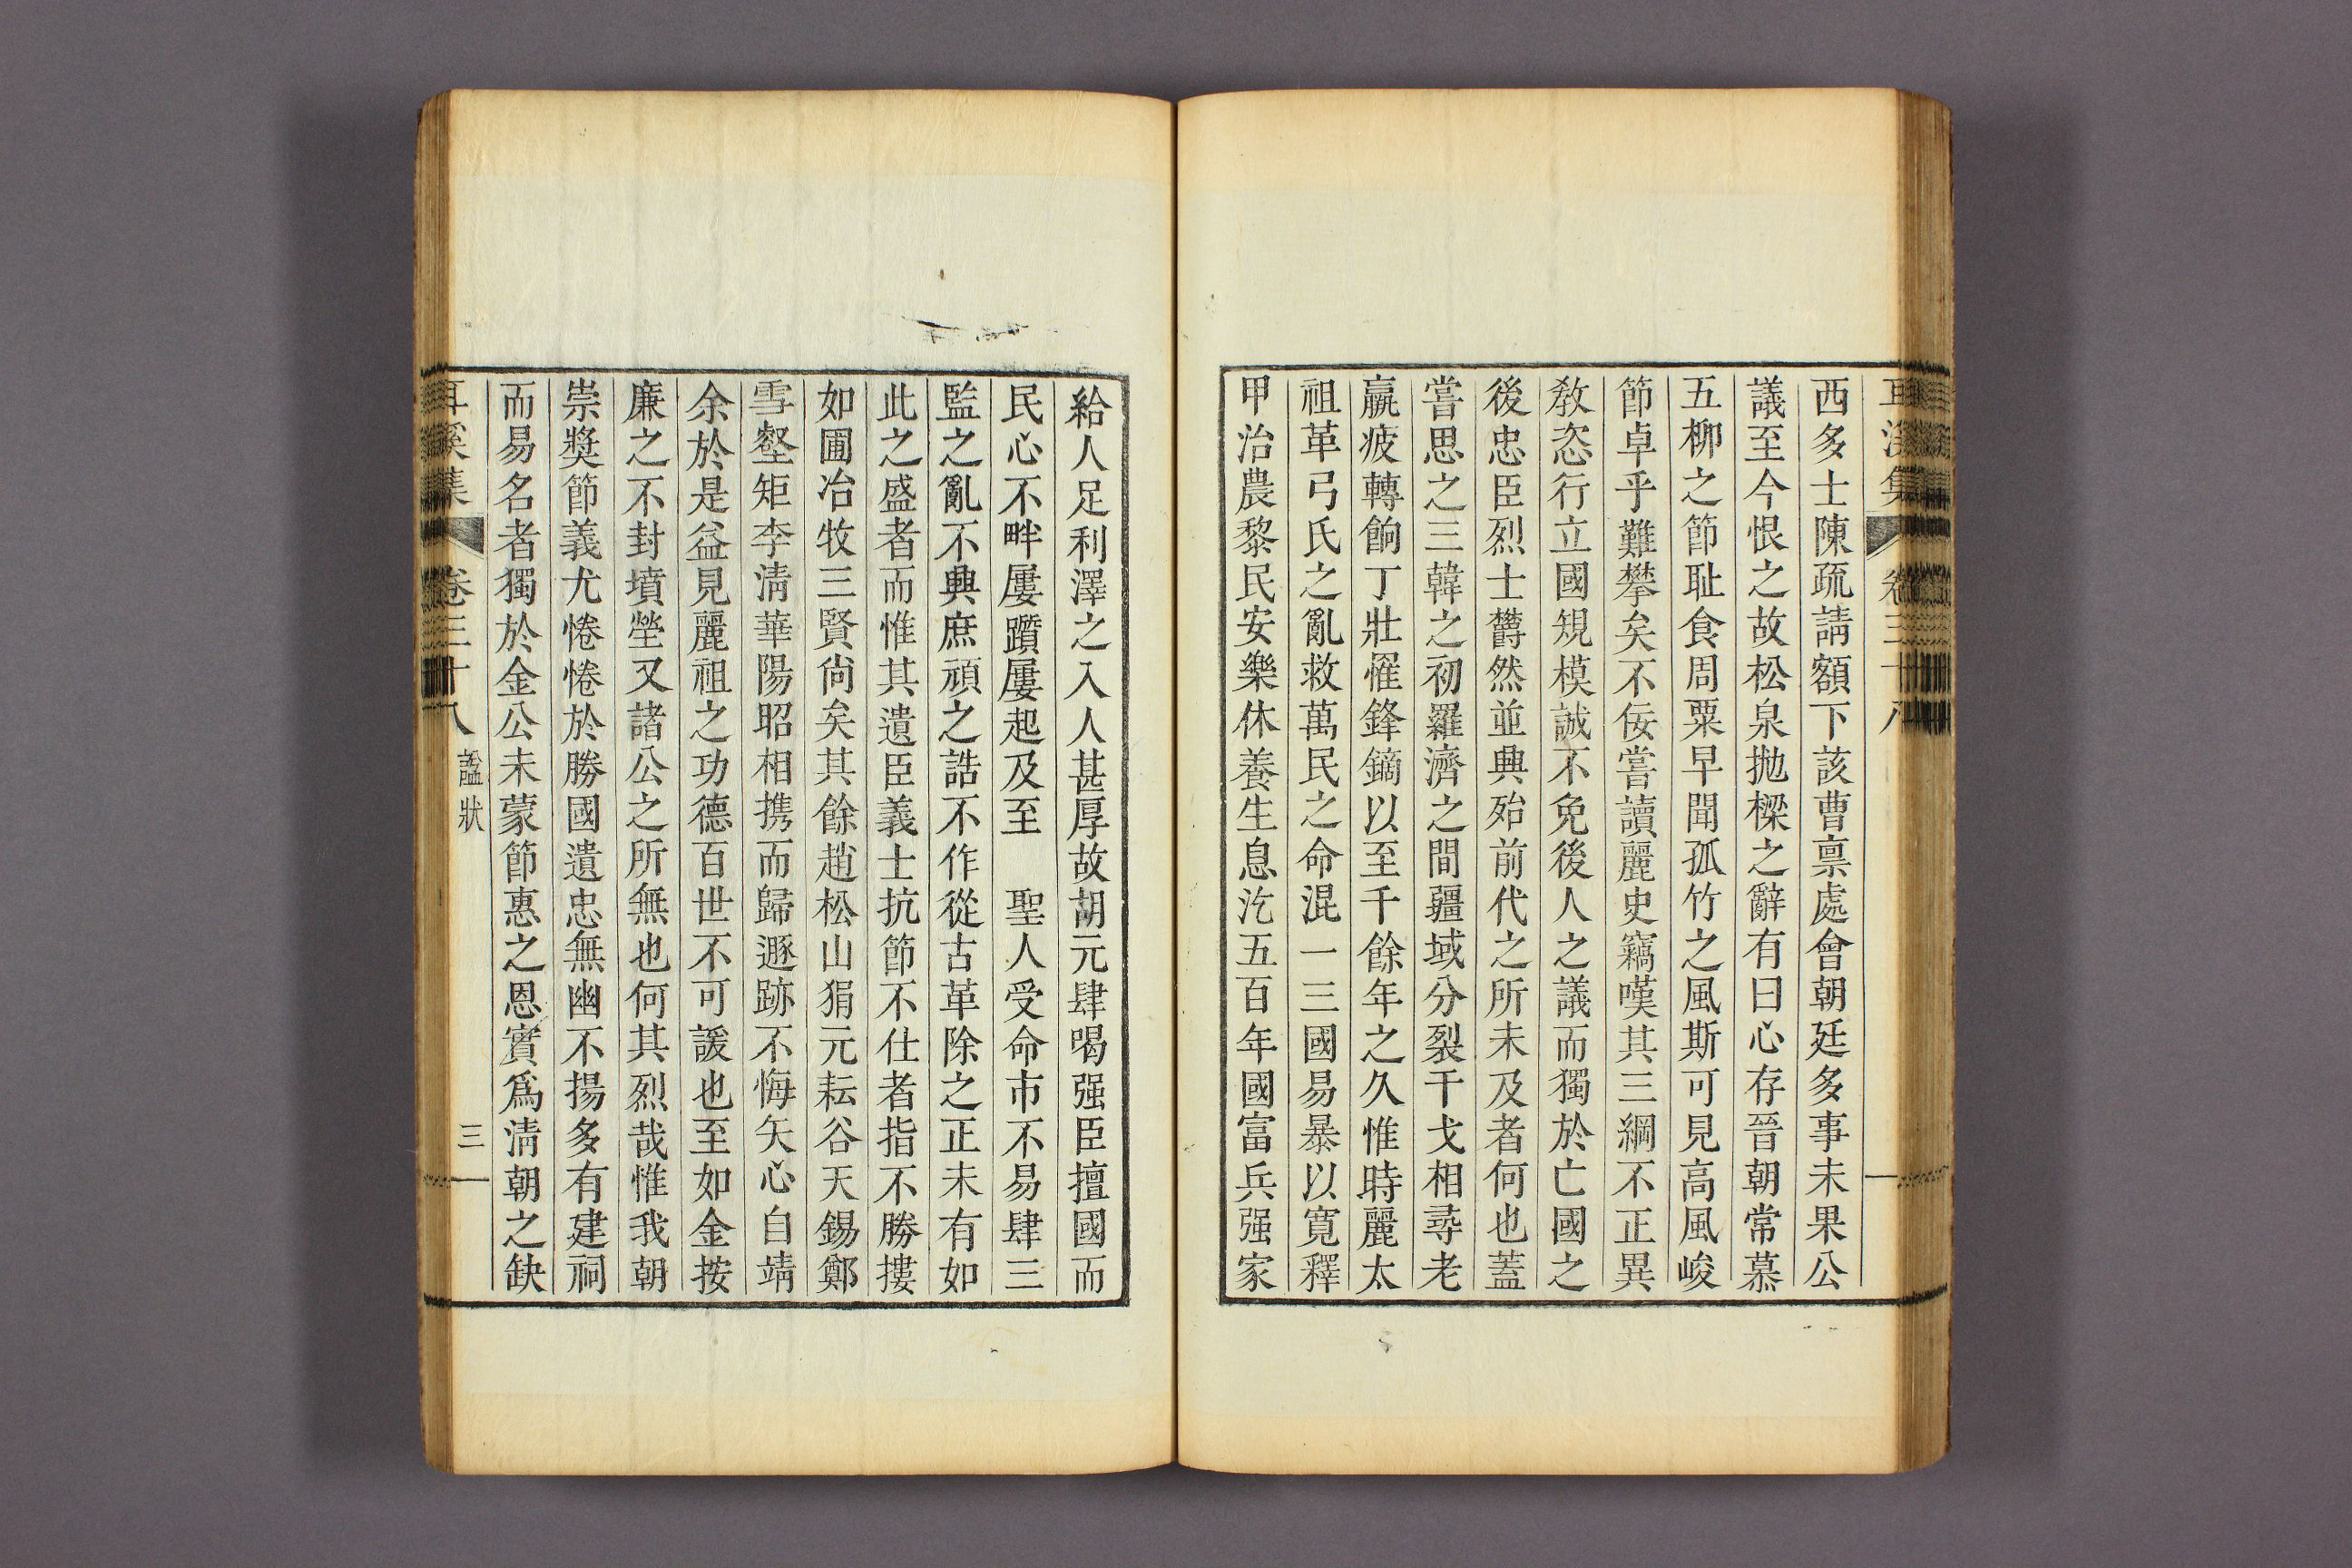 西多士陳疏請額下該曹禀處會朝廷多事未果公
議至今恨之故松泉抛樑之辭有曰心存晉朝常慕
五柳之節耻食周粟早聞孤竹之風斯可見高風峻
節卓乎難攀矣不佞嘗讀麗史竊嘆其三綱不正異
教恣行立國規模誠不免後人之議而獨於亡國之
後忠臣烈士欝然並興殆前代之所未及者何也蓋
嘗思之三韓之初羅濟之間疆域分裂干戈相尋老
羸疲轉餉丁壯罹鋒鏑以至千餘年之久惟時麗太
祖革弓氏之亂救萬民之命混一三國易暴以寬釋
甲治農黎民安樂休養生息汔五百年國富兵强家
給人足利澤之入人甚厚故胡元肆喝强臣擅國而
民心不畔屢躓屢起及至　聖人受命市不易肆三
監之亂不興庶頑之誥不作從古革除之正未有如
此之盛者而惟其遺臣義士抗節不仕者指不勝摟
如圃冶牧三賢尙矣其餘趙松山狷元耘谷天錫鄭
雪壑矩李淸華陽昭相携而歸遯跡不悔矢心自靖
余於是益見麗祖之功德百世不可諼也至如金按
廉之不封墳塋又諸公之所無也何其烈哉惟我朝
崇奬節義尤惓惓於勝國遺忠無幽不揚多有建祠
而易名者獨於金公未蒙節惠之恩實爲淸朝之缺
耳溪集　卷三十八　諡狀　三